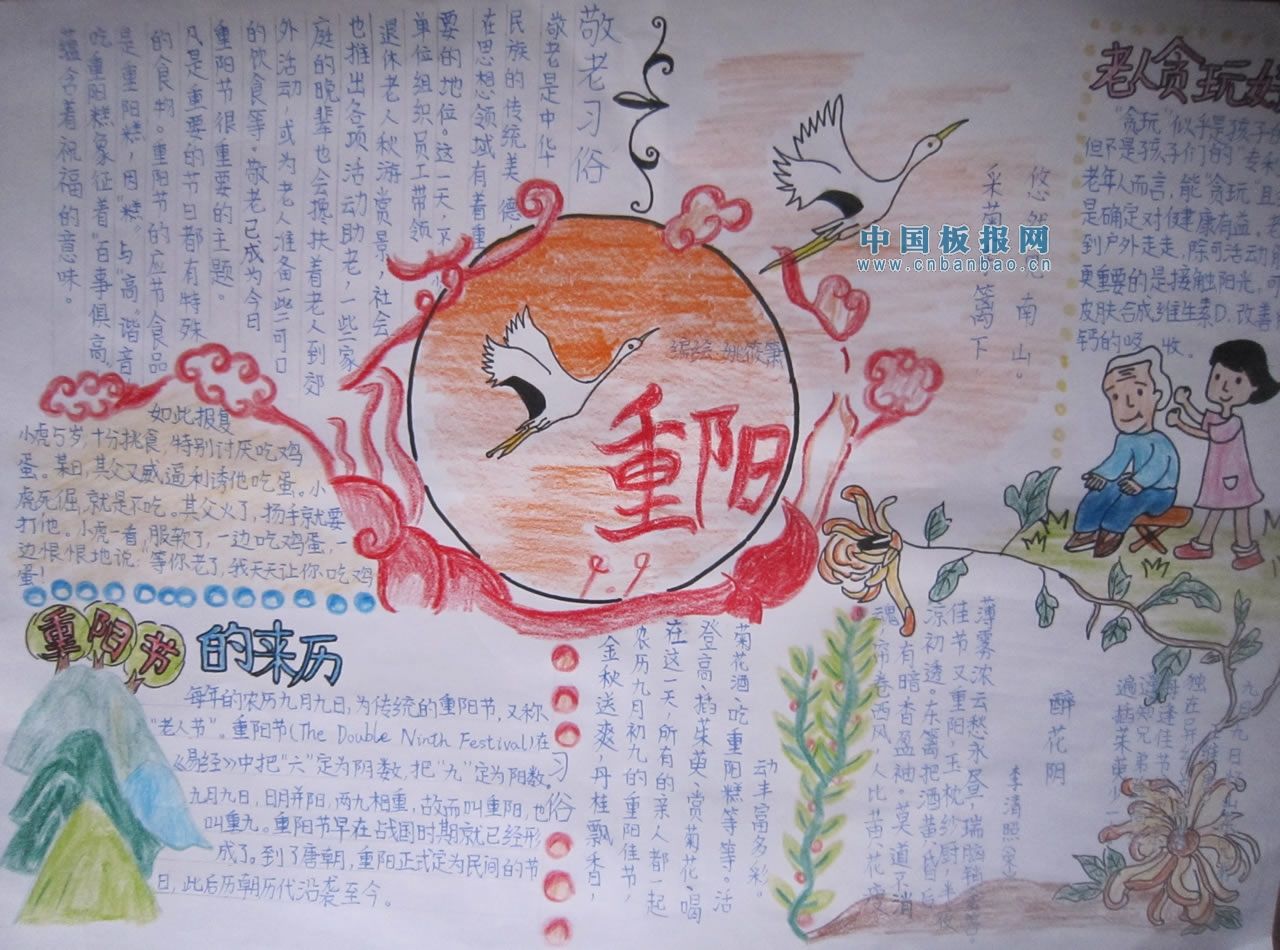 敬老习俗
敬老是中华
民族的传统美德，
在思想领域有着重
要的地位。这一天，不
单位组织员工带领
退休老人秋游赏景，社会
也推出各项活动助老，一些家
庭的晚辈也会搀扶着老人到郊
外活动，或为老人准备一些可口
的饮食等。敬老已成为今日
重阳节很重要的主题。
凡是重要的节日都有特殊
的食物。重阳节的应节食品
是重阳糕，因“糕”与“高”谐音，
吃重阳糕象征着“百事俱高”
蕴含着祝福的意味。
编绘：姚筱箫
重阳
九.九
中国板报网
www.cnbanbao.cn
采菊东篱下
悠然见南山。
老人贪玩
“贪玩”似乎是孩子
但不是孩子们的“专利
老年人而言，能“贪玩”且
是确定对健康有益。老
到户外走走，除可活动
更重要的是接触阳光，可
皮肤合成维生素D.改善
钙的吸收。
如此报复
小虎5岁，十分挑食，特别讨厌吃鸡
蛋。某日，其父又威逼利诱他吃蛋。小
虎死倔，就是不吃。其父火了，扬手就要
打他。小虎一看，服软了，一边吃鸡蛋，一
边恨恨地说：“等你老了，我天天让你吃鸡
蛋！
重阳节的来历
每年的农历九月九日，为传统的重阳节，又称
“老人节”。重阳节(The Double Ninth Festival)在
《易经》中把“六”定为阴数，把“九”定为阳数。
九月九日，日月并阳，两九相重，故而叫重阳，也
叫重九。重阳节早在战国时期就已经形
成了。到了唐朝，重阳正式定为民间的节
日，此后历朝历代沿袭至今。
习俗
金秋送爽，丹桂飘香，
农历九月初九的重阳佳节，
在这一天，所有的亲人都一起
登高、插茱萸、赏菊花、喝
菊花酒、吃重阳糕等等。活
动丰富多彩。
醉花阴
李清照(宋)
薄雾浓云愁永昼，瑞脑销金兽。
佳节又重阳，玉枕纱厨，半夜
凉初透。东篱把酒黄昏后，
有暗香盈袖。莫道不消
魂，帘卷西风，人比黄花瘦
九月九日
独在异
每逢佳节
遥知兄弟
遍插茱萸少一